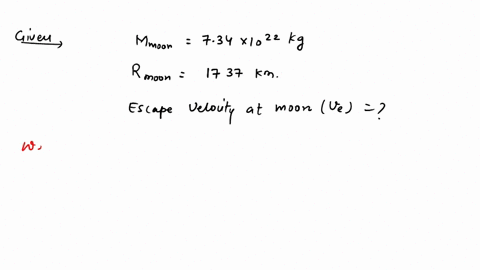 Given
M moon = 7.34 × 10^22 kg
R moon = 1737 km.
Escape Velocity at moon (Ve) = ?
w.